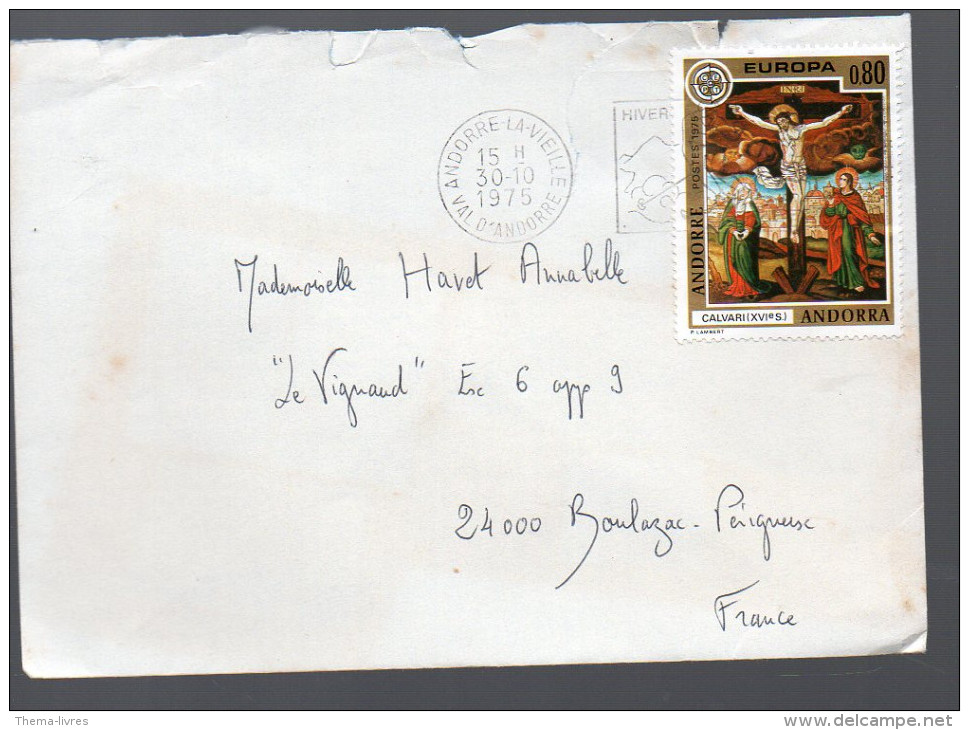 EUROPA 0.80
CEPT
INRI
POSTES 1975
ANDORRE
CALVARI (XVIe S.) ANDORRA
P. LAMBERT
ANDORRE-LA-VIEILLE
15 H
30-10
1975
VAL D'ANDORRE
HIVER
Mademoiselle Havet Annabelle
"Le Vignaud" Esc 6 app 9
24000 Boulazac-Périgueux
France
Thema-livres
www.delcampe.net